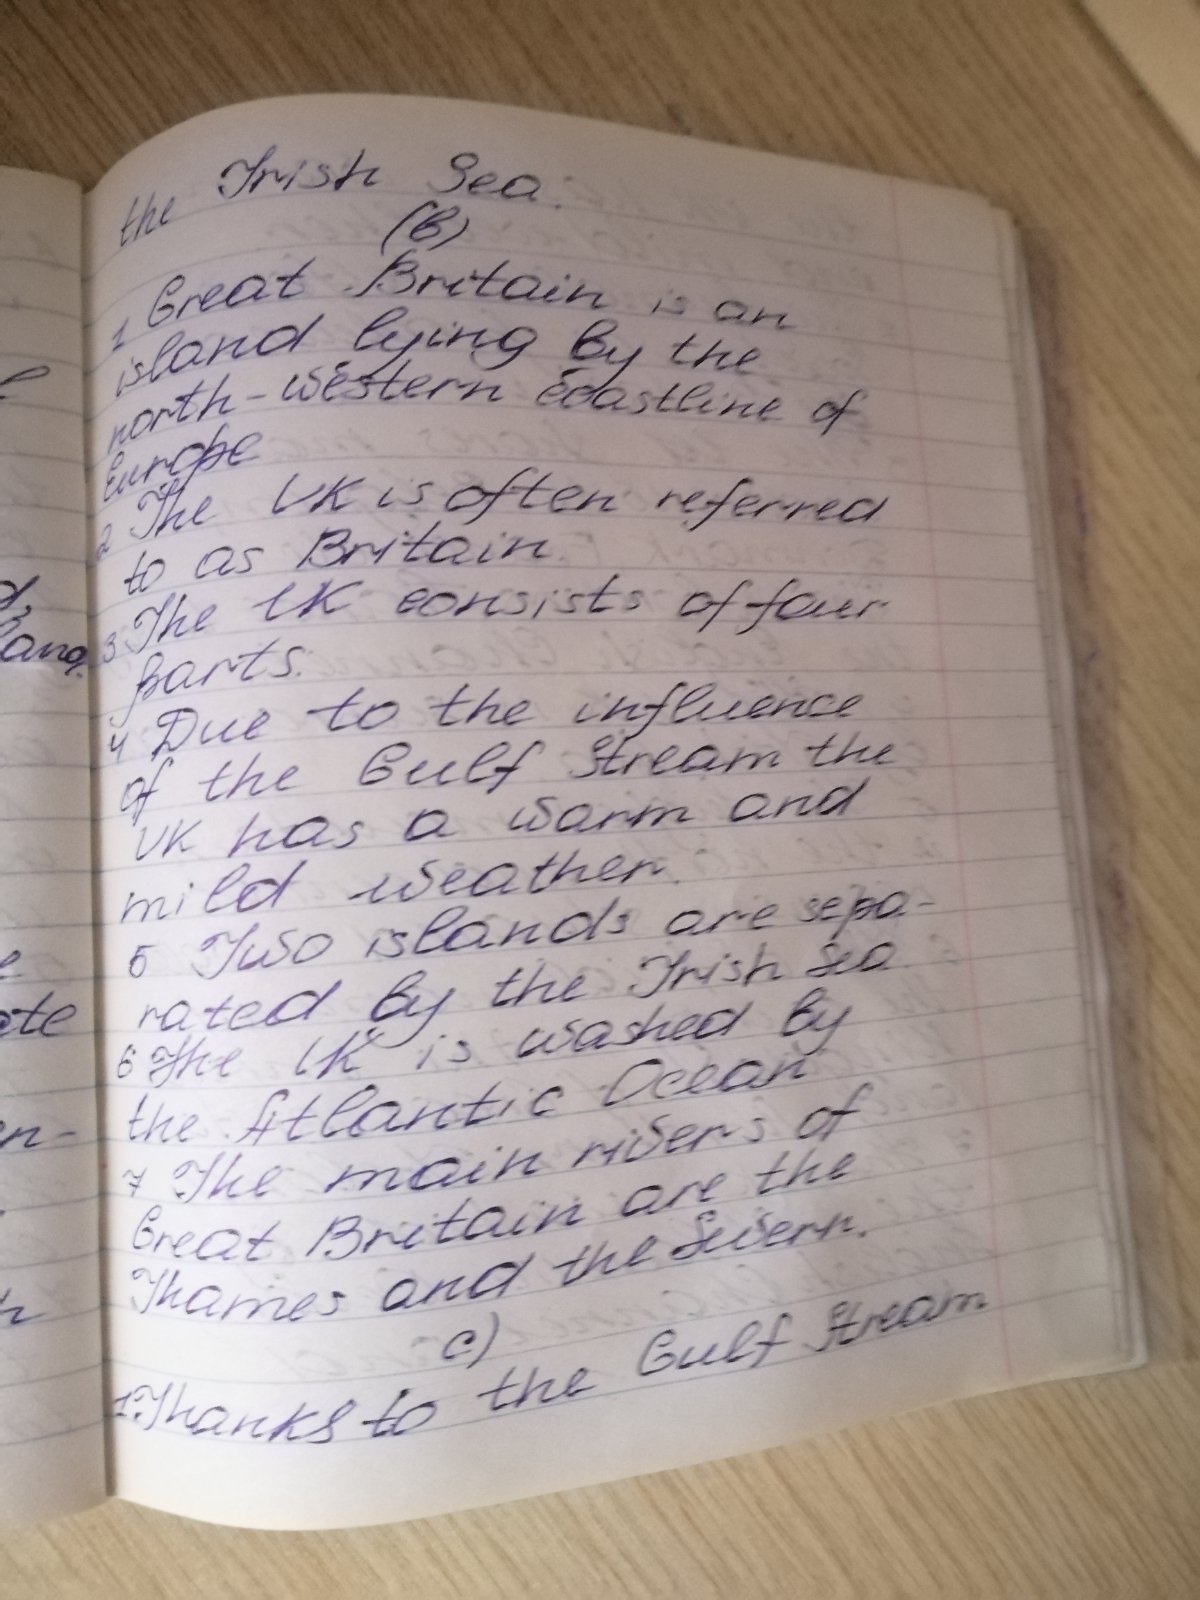 the Irish Sea.
(b)
1 Great Britain is an
island lying by the
north-western coastline of
Europe
2 The UK is often referred
to as Britain.
3 The UK consists of four
parts.
4 Due to the influence
of the Gulf Stream the
UK has a warm and
mild weather.
5 Two islands are sepa-
rated by the Irish Sea
6 The UK is washed by
the Atlantic Ocean
7 The main rivers of
Great Britain are the
Thames and the Severn.
c)
1. Thanks to the Gulf Stream